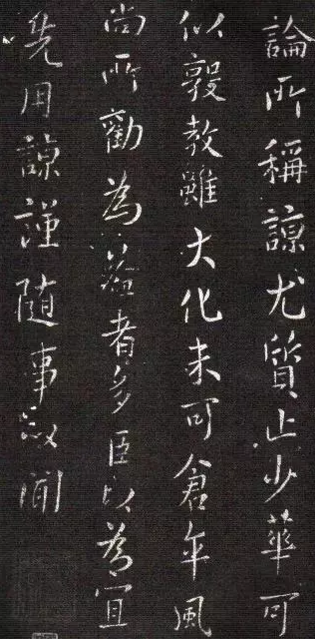 論所稱諒尤質止少華可
似敦教雖大化未可倉卒風
尚所勸為益者多臣以為宜
先用諒謹隨事以聞